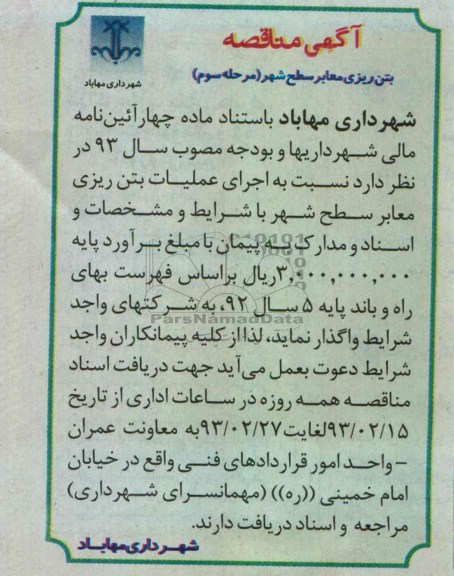 آگهی مناقصه
بتن ریزی معابر سطح شهر (مرحله سوم)
شهرداری مهاباد
شهرداری مهاباد باستناد ماده چهار آئین‌نامه
مالی شهرداریها و بودجه مصوب سال ۹۳ در
نظر دارد نسبت به اجرای عملیات بتن ریزی
معابر سطح شهر با شرایط و مشخصات و
اسناد و مدارک به پیمان با مبلغ برآورد پایه
۳,۰۰۰,۰۰۰,۰۰۰ریال براساس فهرست بهای
راه و باند پایه ۵ سال ۹۲، به شرکتهای واجد
ParsNamadData
شرایط واگذار نماید، لذا از کلیه پیمانکاران واجد
شرایط دعوت بعمل می‌آید جهت دریافت اسناد
مناقصه همه روزه در ساعات اداری از تاریخ
۹۳/۰۲/۱۵لغایت۹۳/۰۲/۲۷به معاونت عمران
-واحد امور قراردادهای فنی واقع در خیابان
امام خمینی ((ره)) (مهمانسرای شهرداری)
مراجعه و اسناد دریافت دارند.
شهرداری مهاباد